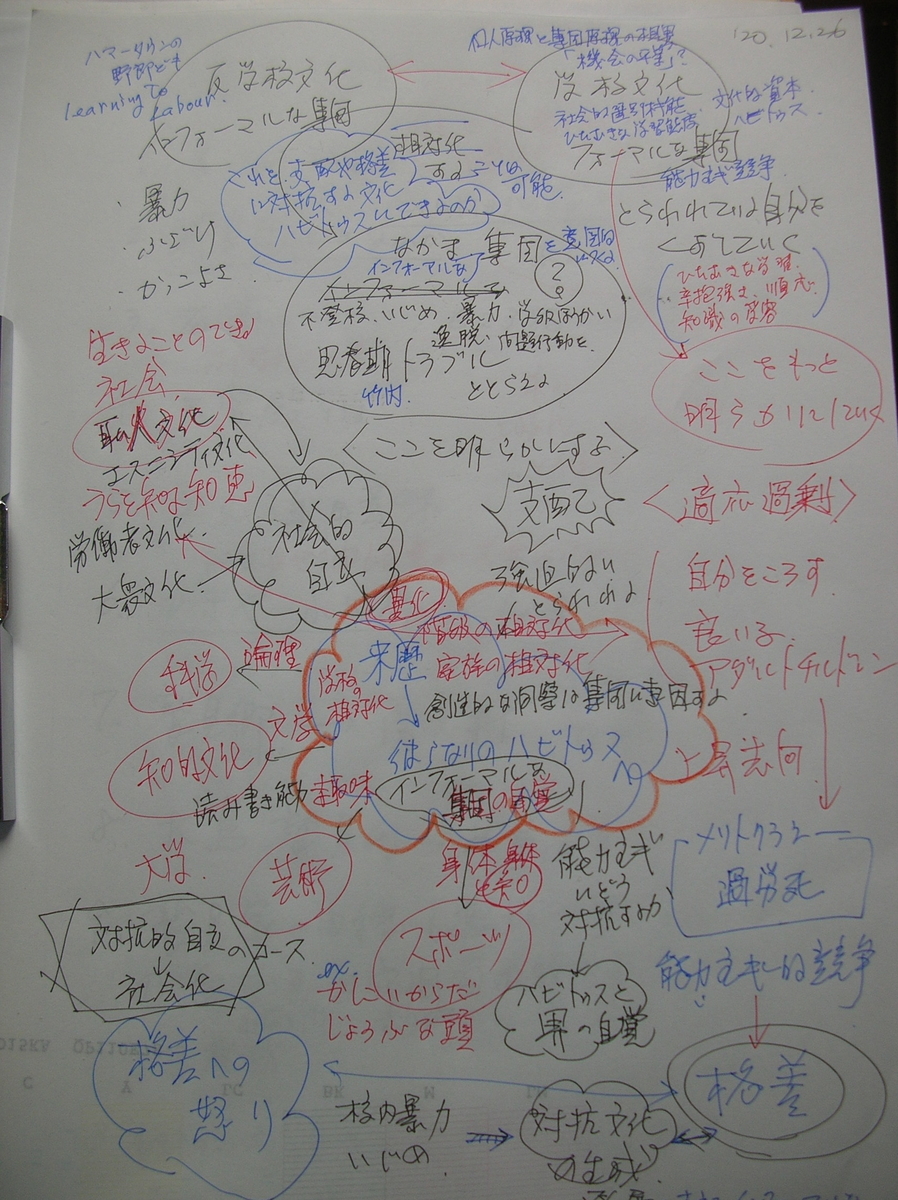 '20. 12. 26
ハマータウンの
野郎ども
learning to
Labour.
反学校文化
インフォーマルな集団
「機会の平等」?
学校文化
社会的差別機能
ひたむきな学習態度
フォーマルな集団
文化的な資本
ハビトゥス
能力主義競争
とらわれている自分を
くずしていく
(ひたむきな学習
辛抱強さ、順応、
知識の受容)
・暴力
・ふざけ
・かっこよさ
相対化
することは
可能
これを支配や格差
に対抗する文化
ハビトゥスにできるのか
なかま集団を意図的
につくる
インフォーマルな
?
不登校、いじめ、暴力、学級ほうかい
逸脱、問題行動を
思春期トラブル
ととらえる
竹内
ここをもっと
明らかにしていく
<ここを明らかにする>
生きることのできる
社会
職人文化
エスニシティ文化
うらを知る知恵
労働者文化
大衆文化
社会的
自立
支配
強迫的な
とらわれ
<適応過剰>
自分をころす
良い子
アダルトチルドレン
上昇志向
メリトクラシー
過労死
能力主義的競争
格差
異化
階級の相対化
来歴
家族の相対化
学校の
相対化
創造的な洞察は集団に起因する
彼らなりのハビトゥスへの
インフォーマルな
集団の自覚
論理
科学
文学
知的文化
読み書き能力
趣味
大学
芸術
身体
スポーツ
ex.
かしこいからだ
じょうぶな頭
能力主義
にどう
対抗するか
ハビトゥスと
界の自覚
対抗的自立のコース
社会化
格差への
怒り
校内暴力
いじめ
対抗文化
の生成